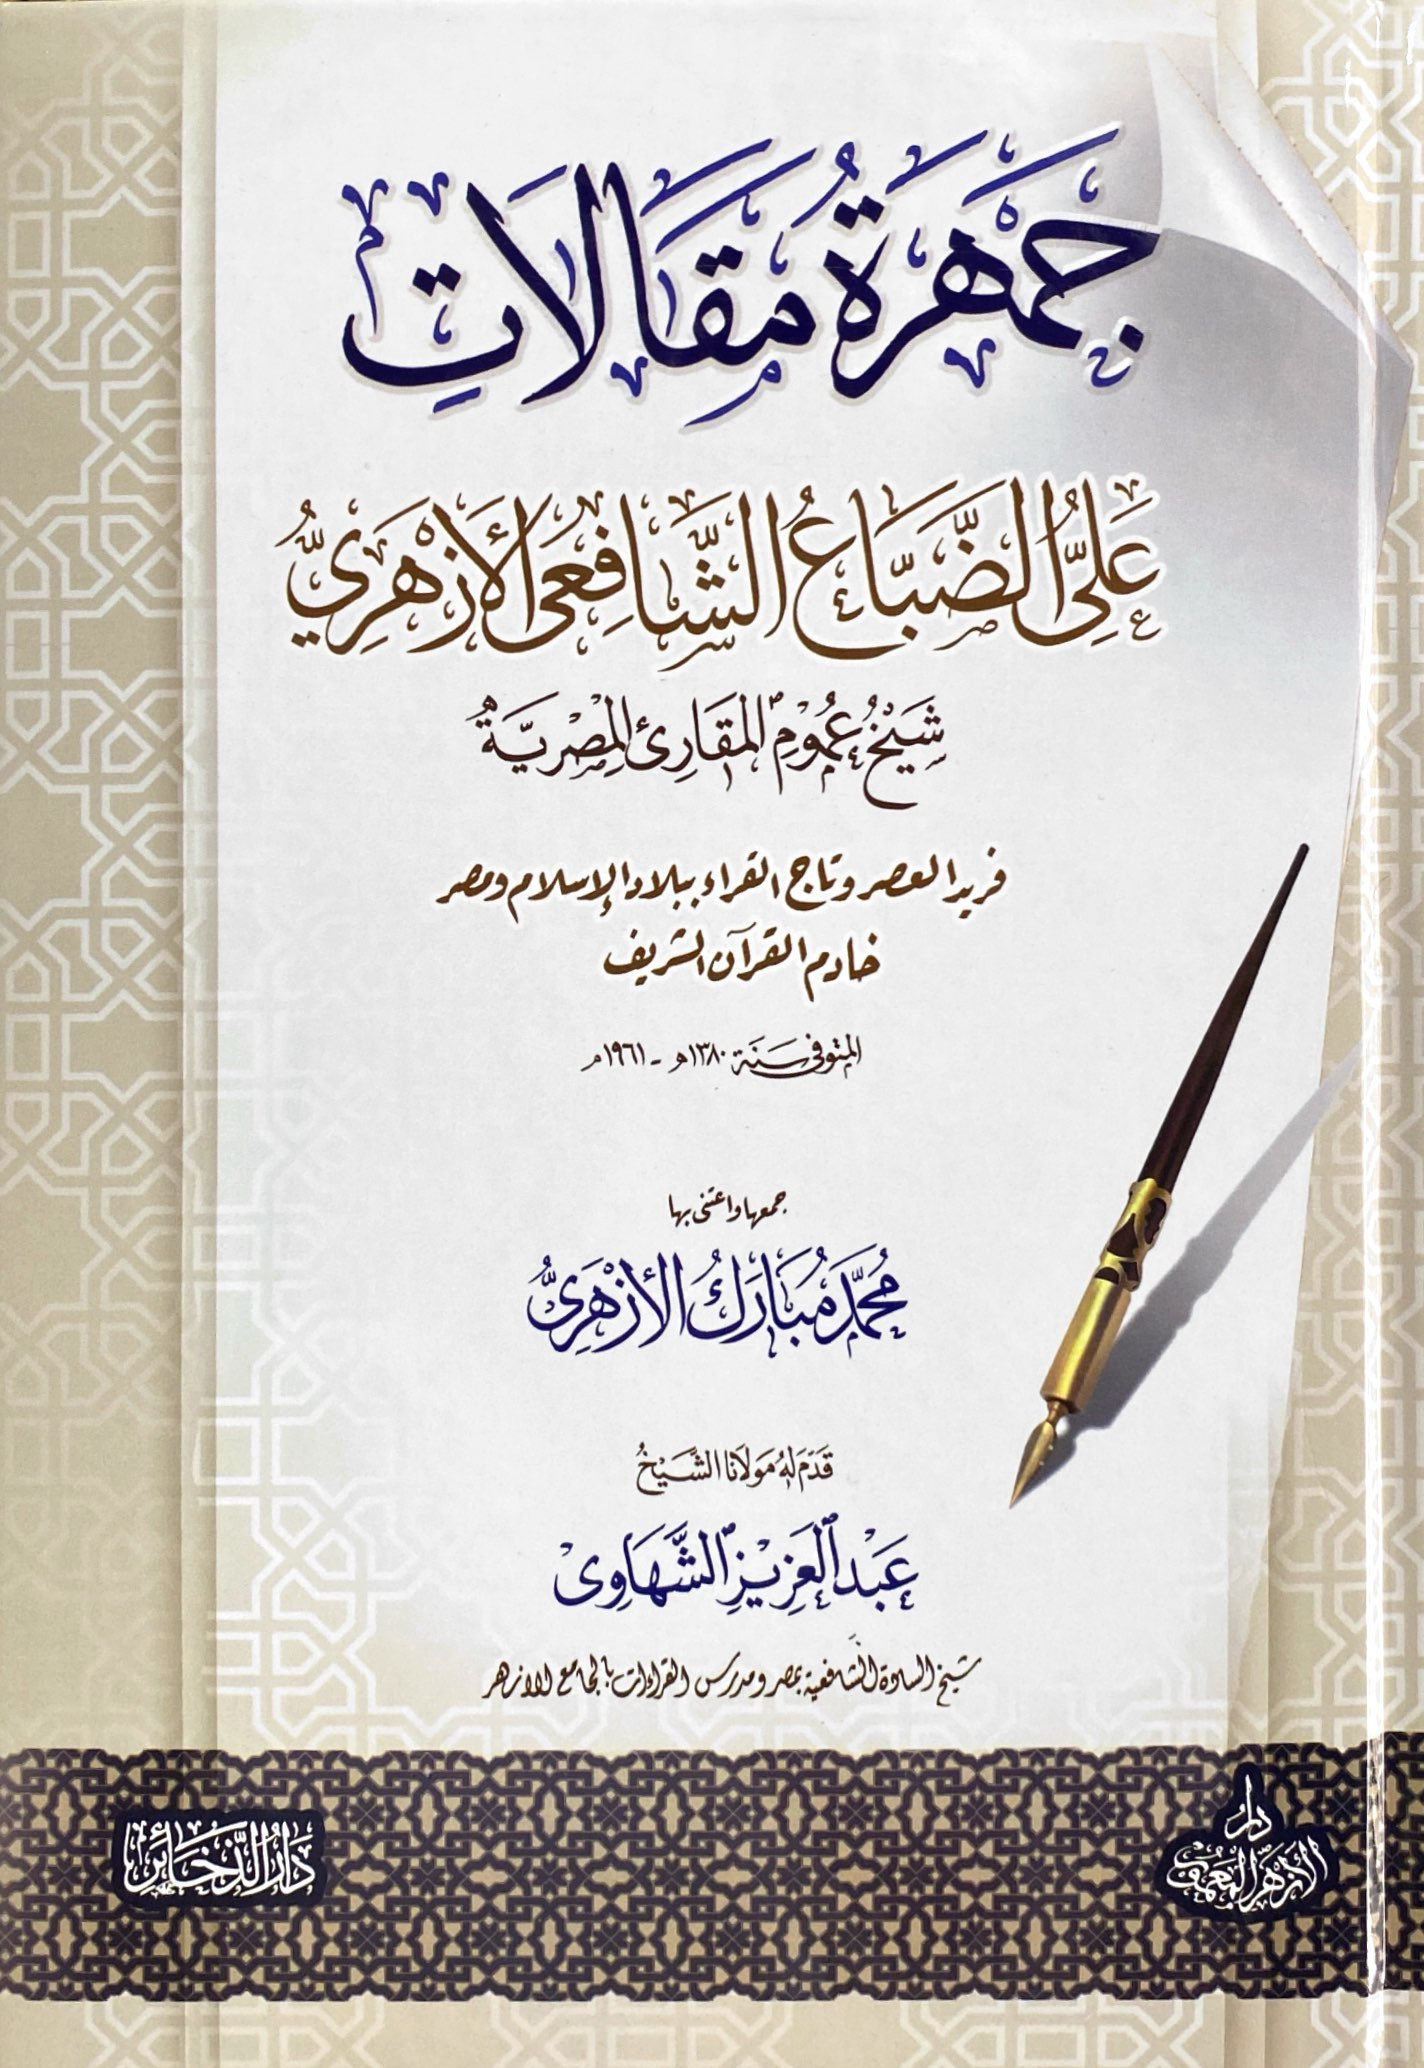 جَمْهَرَةُ مَقَالَاتِ
عَلِيُّ الضَّبَّاعُ الشَّافِعِيُّ الأَزْهَرِيُّ
شَيْخُ عُمُومِ المَقَارِئِ المِصْرِيَّةِ
فريد العصر وتاج القراء ببلاد الإسلام ومصر
خادم القرآن الشريف
المتوفى سَنَة ١٣٨٠هـ - ١٩٦١م
جمعها واعتنى بها
مُحَمَّد مُبَارَكُ الأَزْهَرِيُّ
قَدَّمَ لَهُ مَولَانَا الشَّيْخُ
عَبْدُ العَزِيزِ الشَّهَاوِي
شيخ السادة الشافعية بمصر ومدرس القراءات بالجامع الأزهر
دَارُ الذَّخَائِرِ
دار
الأزهر المعمور